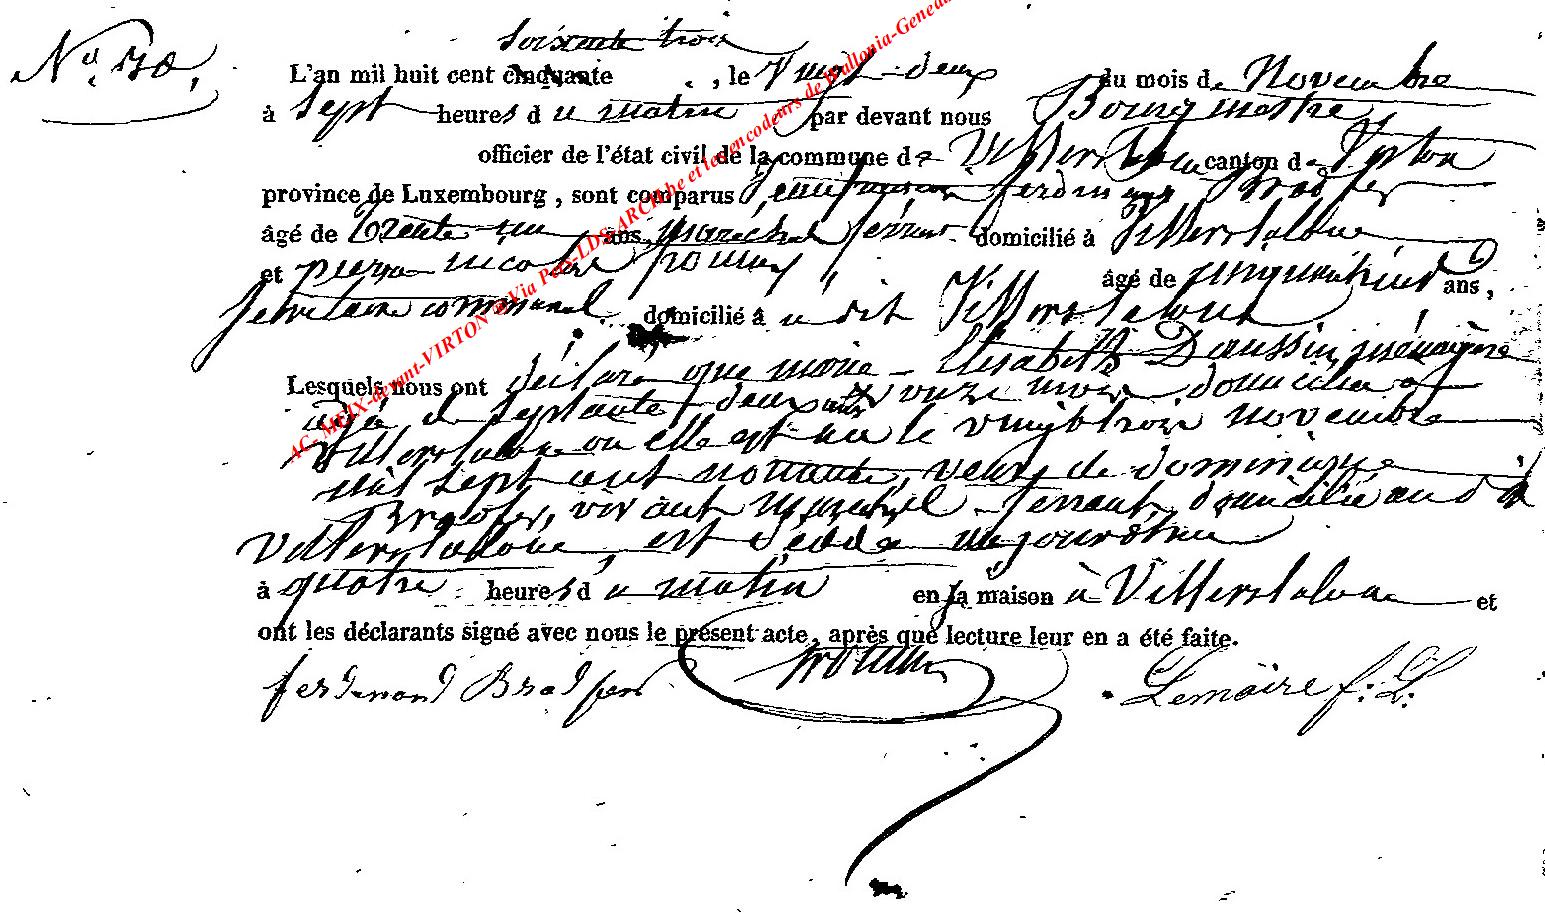 soixante trois
L'an mil huit cent cinquante , le Vingt-deux du mois de Novembre
à Sept heures du matin par devant nous Bourgmestre
officier de l'état civil de la commune de Villers la loue canton de Virton
province de Luxembourg, sont comparus ferdinand
âgé de trente un ans, maréchal ferrant domicilié à Villerslaloue
et pierre nicolas âgé de ans,
secrétaire communal domicilié à u dit Villerslaloue
Lesquels nous ont déclaré que marie Elisabeth Daussin, ménagère
agée de septante deux ans onze mois domiciliée à
Villerslaloue ou elle est née le vingt trois novembre
mil sept cent nonante, veuve de dominique
vivant maréchal ferrant, domicilié au dit
Villerslaloue, est décédée aujourd'hui
à quatre heures du matin en sa maison à Villerslaloue et
ont les déclarants signé avec nous le présent acte, après que lecture leur en a été faite.
ferdinand Lemaire f.
AC- MEIX-devant-VIRTON @Via Pays-LDS-ARCH.be et les encodeurs de Wallonia-Genea